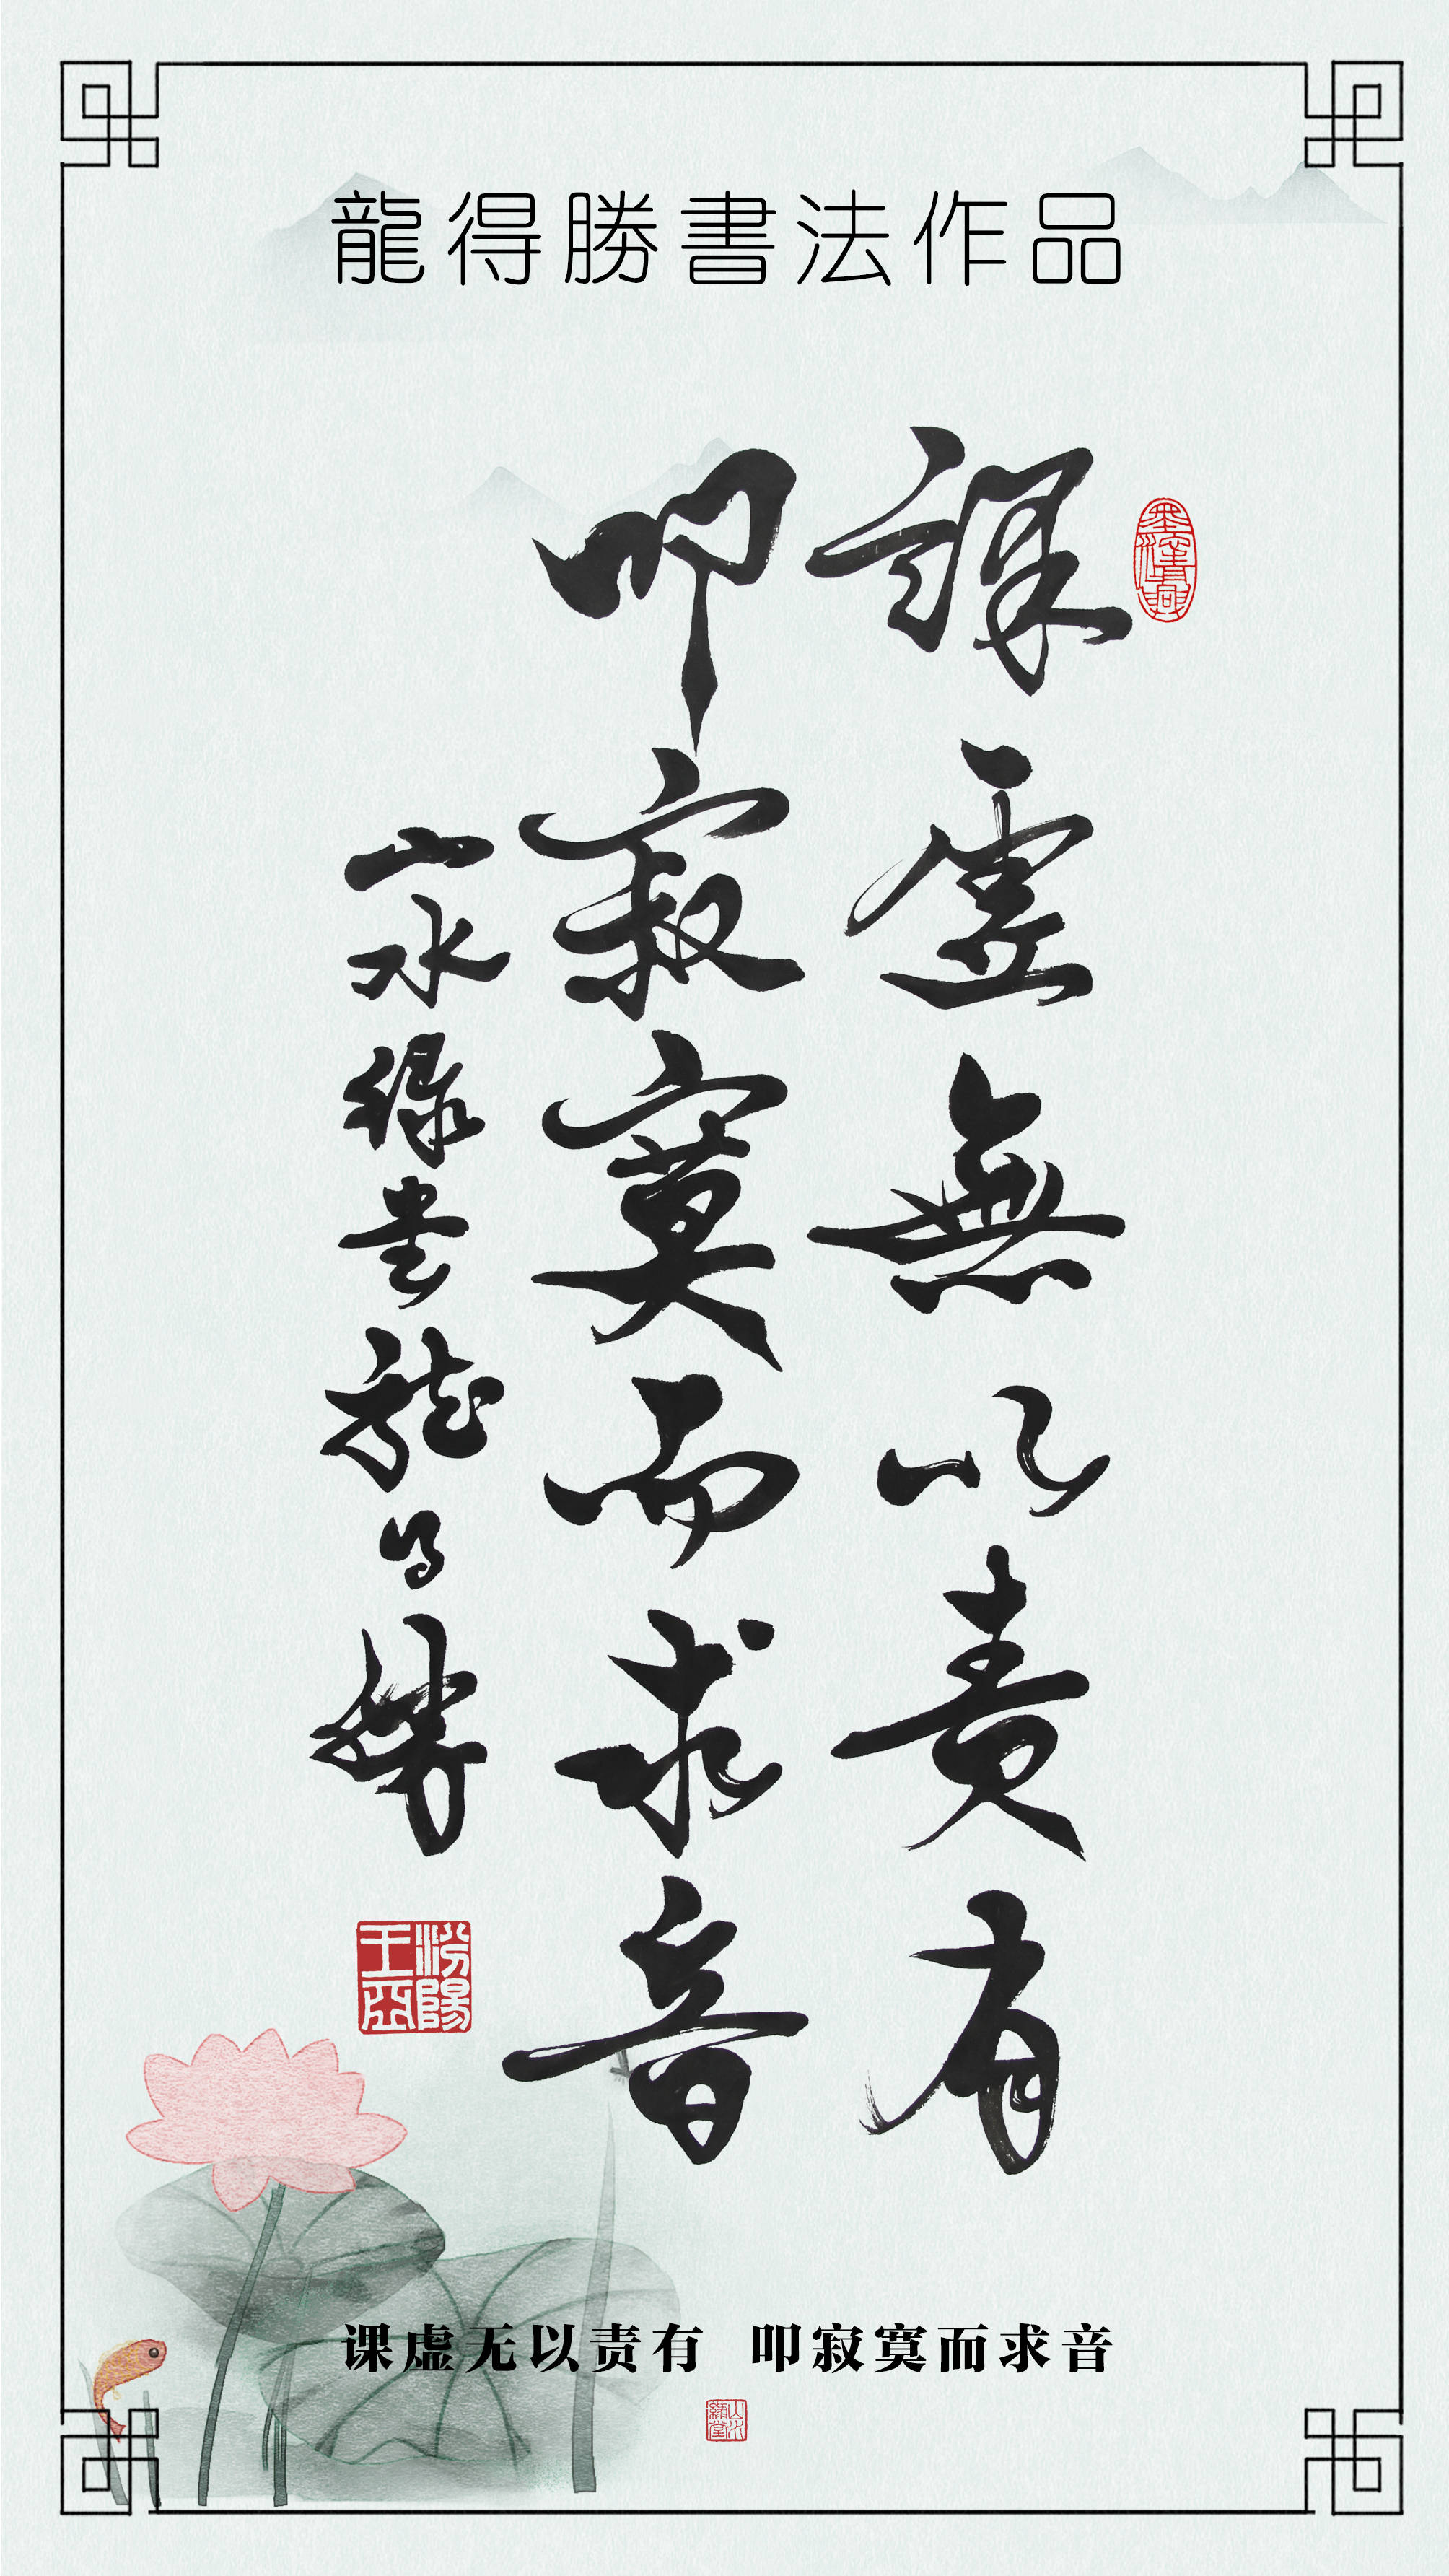 龍得勝書法作品
課虛無以責有
叩寂寞而求音
山水緣堂龍得勝
汾陽王裔
课虚无以责有 叩寂寞而求音
山水緣堂